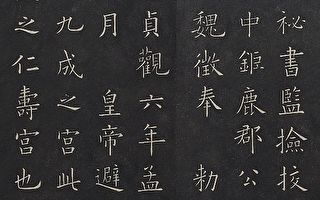 祕書監撿挍
中鉅鹿郡公
魏徵奉 勅
貞觀六年孟
月 皇帝避
九成之宮此
之仁壽宮也